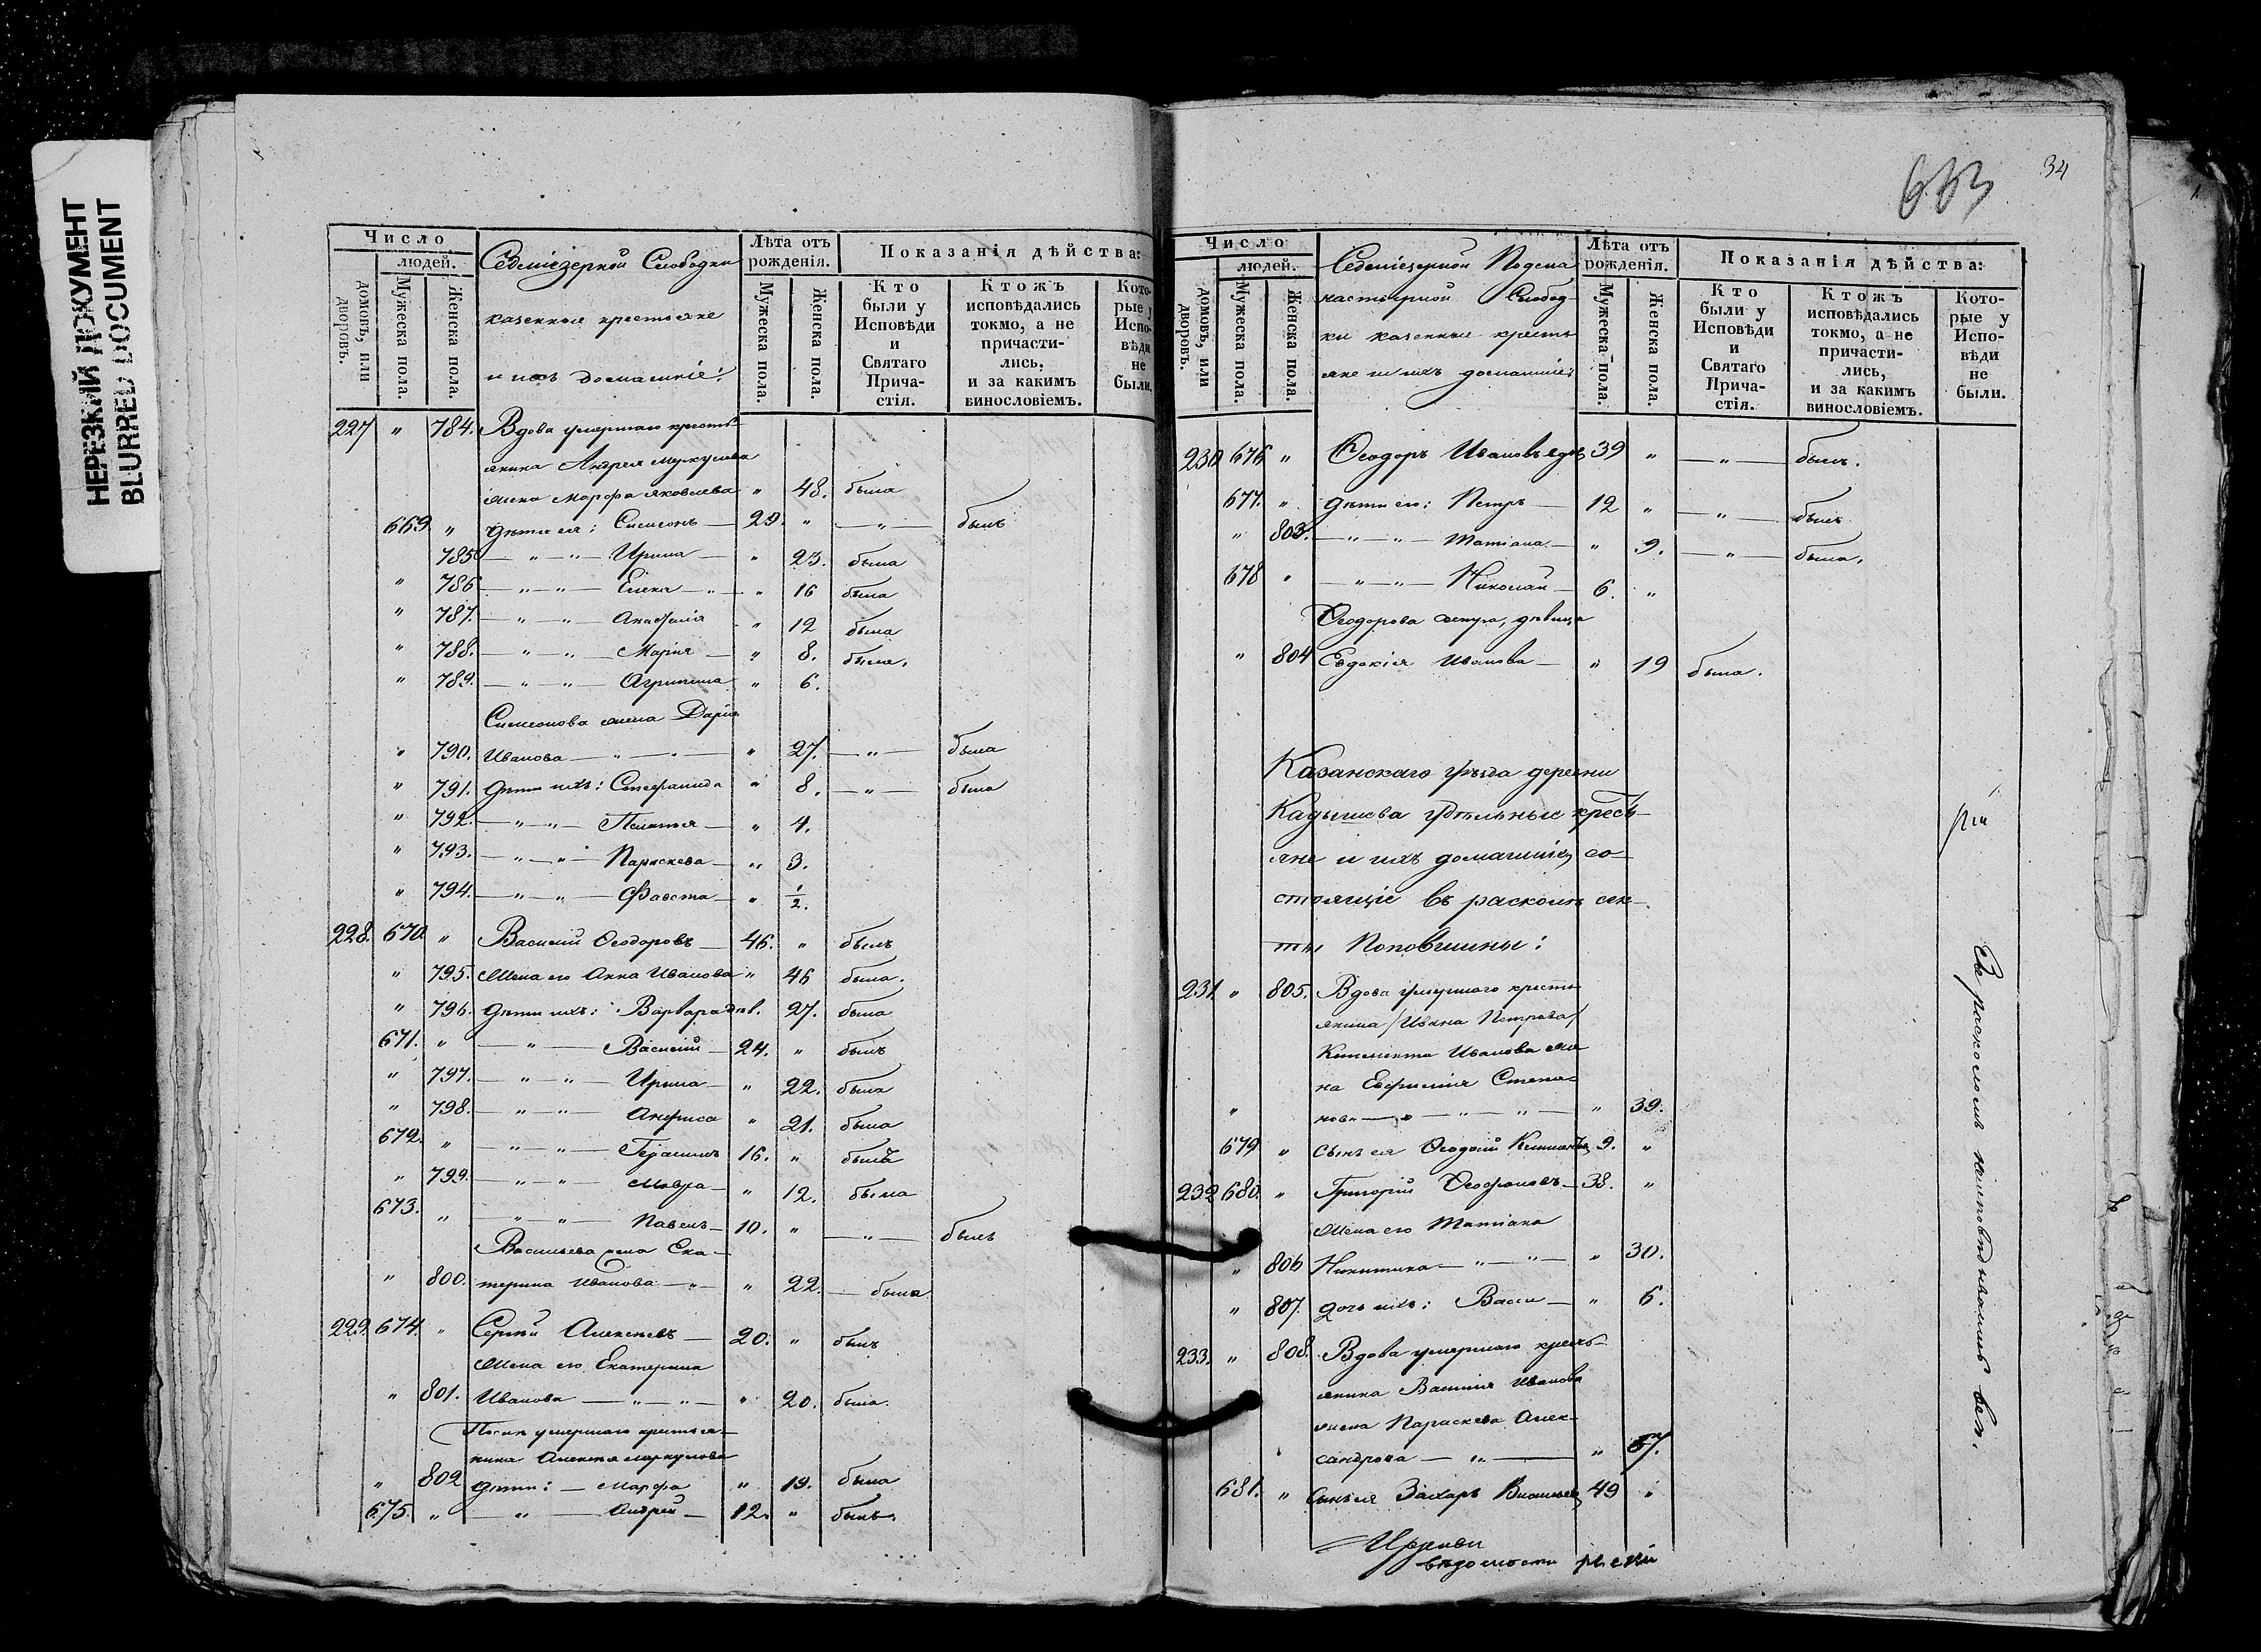 НЕРЕЗКИЙ ДОКУМЕНТ
BLURRED DOCUMENT
Число
людей.
домовъ, или дворовъ.
Мужеска пола.
Женска пола.
Седміезерной Слободки
казенные крестьяне
и ихъ домашніе:
Лѣта отъ рожденія.
Мужеска пола.
Женска пола.
Показанія дѣйства:
Кто были у Исповѣди и Святаго Прича-стія.
Ктожъ исповѣдались токмо, а не причасти-лись, и за какимъ винословіемъ.
Кото-рые у Испо-вѣди не были.
227 " 784. Вдова умершаго кресть-
янина Андрея Меркулова
жена Марфа Яковлева " 48. была
669. " дѣти ея: Симеонъ — 29. " — " — былъ
785 — " — " — Ирина — " 23. была
" 786 — " — " — Елена — " — " 16 была
" 787. — " — " — Анафилія " 12 была
" 788. — " — " — Марія — " 8. была.
" 789. — " — " — Агрипина " 6.
Симеонова жена Дарія
" 790. Иванова — " — " — " 27. — " — была
" 791. дѣти ихъ: Стефанида " 8. — " — была
" 792. — " — " — Пелагія — " 4.
" 793. — " — " — Параскева — " 3.
" 794. — " — " — Фавста — " 1/2.
228. 670 " Василий Ѳеодоровъ — 46. " былъ
" 795. Жена его Анна Иванова " 46 была.
" 796. дѣти ихъ: Варвара дѣв. 27. была
671. " — " — Василий — 24. " былъ
" 797. — " — " — Ирина — " 22. была
" 798. — " — " — Анфиса " 21. была
672. " — " — " — Герасимъ 16. " былъ
" 799. — " — " — Мавра — " 12. была
673. " — " — " — Павелъ — 10. " — " — былъ
Васильева жена Ека-
" 800. терина Иванова — " — " 22. — была
229. 674. " Сергѣй Алексѣевъ — 20. " былъ
Жена его Екатерина
" 801. Иванова — " — " — " 20. была.
Послѣ умершаго крестья-
нина Алексѣя Меркулова
" 802 дѣти: — Марфа " 19. была
675. " — " — Андрей — 12. " былъ.
633
34
Число
людей.
домовъ, или дворовъ.
Мужеска пола.
Женска пола.
Седміезерной Подмо
настырной Слобод-
ки казенные кресть
яне и ихъ домашніе:
Лѣта отъ рожденія.
Мужеска пола.
Женска пола.
Показанія дѣйства:
Кто были у Исповѣди и Святаго Прича-стія.
Ктожъ исповѣдались токмо, а не причасти-лись, и за какимъ винословіемъ.
Кото-рые у Испо-вѣди не были.
230 676 " Ѳеодоръ Ивановъ вдов 39 " — " — былъ.
677. " дѣти его: Петръ — 12 " — " — былъ
" 803. — " — " — Татіана — " 9. — " — была.
678 " — " — " — Николай — 6. "
Ѳеодорова сестра, дѣвица
" 804 Евдокія Иванова — " 19 была.
Казанскаго уѣзда деревни
Кадышева удѣльные кресть-
яне и ихъ домашніе, со-
стоящіе въ расколѣ сек-
ты Поповщины:
231. " 805. Вдова умершаго кресть
янина /Ивана Петрова/
Климента Иванова же
на Евфимія Степа-
нова — " — " — " — " 39.
679 " сынъ ея Ѳеодосій 9. "
232 680. " Григорій Ѳеофановъ — 38. "
Жена его Татіана
" 806 Никитина — " — " — " 30.
" 807. дочь ихъ: Васса — " 6.
233. " 808. Вдова умершаго кресть-
янина Василія Иванова
жена Параскева Алек-
сандрова — " — " 67.
681. " Сынъ ея Захаръ Васильевъ 49 "
За расколомъ неисповѣдывались всѣ.